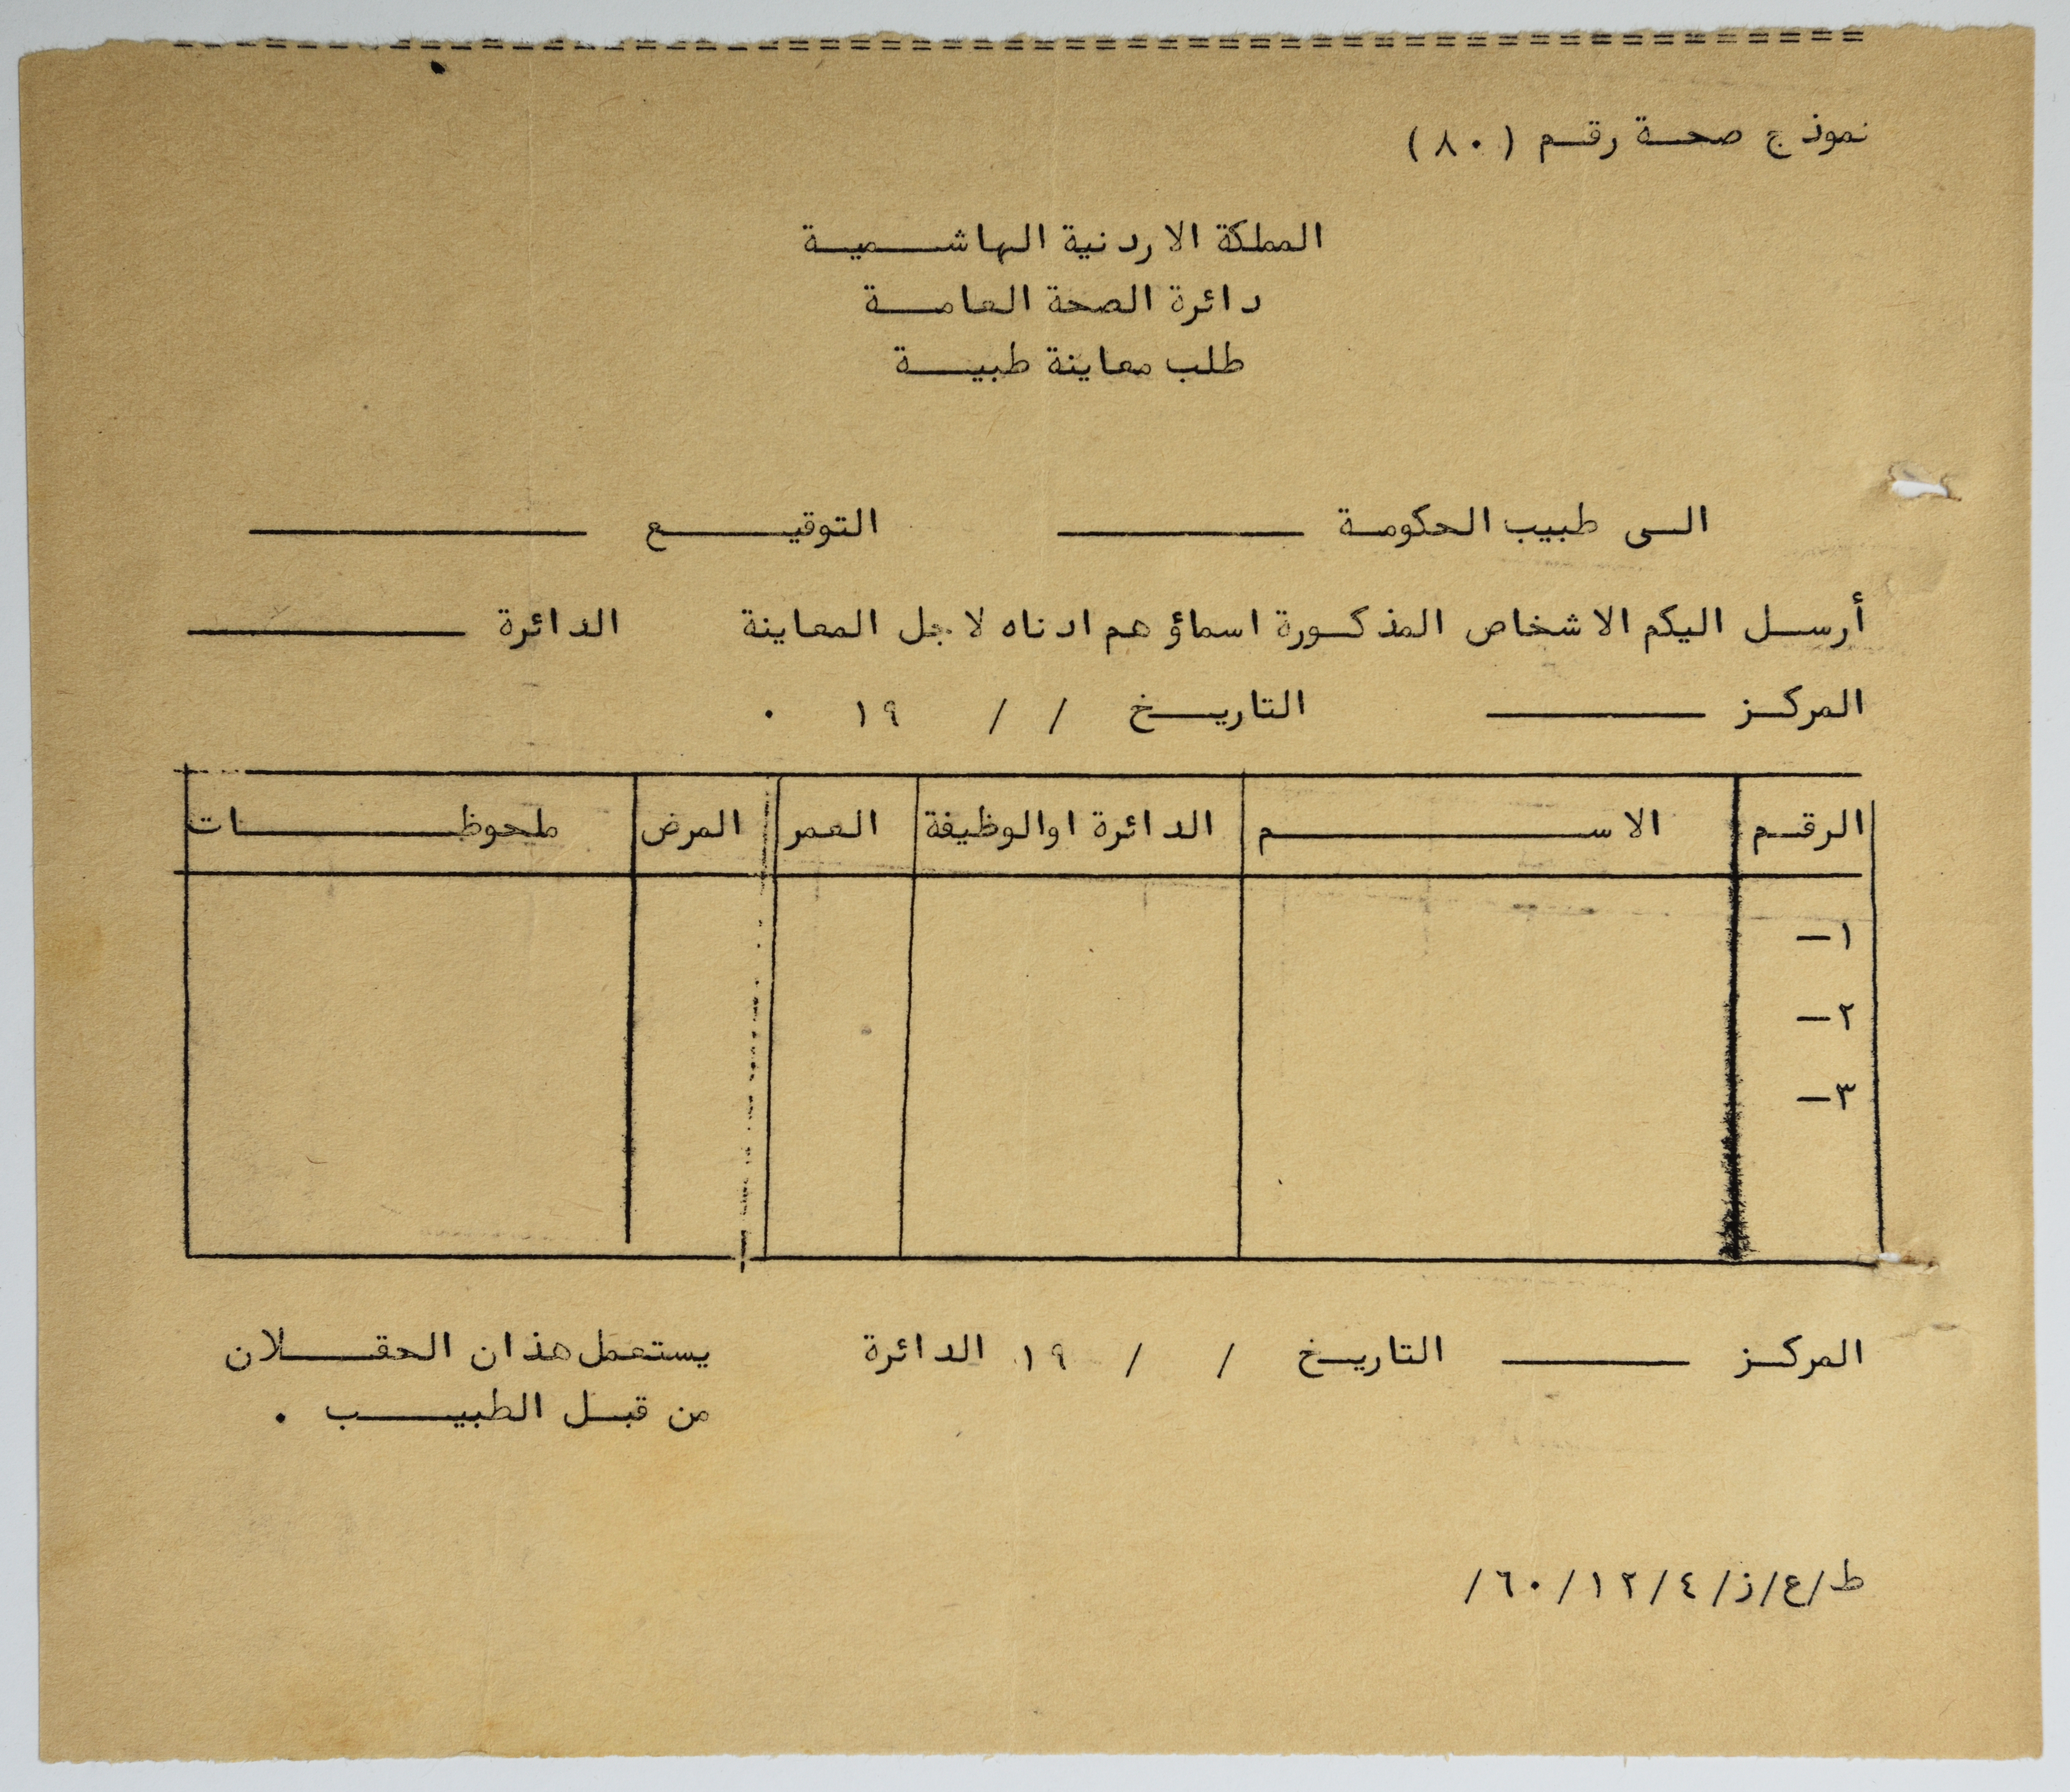 نموذج صحة رقم (٨٠)
المملكة الاردنية الهاشمية
دائرة الصحة العامة
طلب معاينة طبية
الى طبيب الحكومة ــــــــ التوقيع ــــــــ
أرسل اليكم الاشخاص المذكورة اسماؤهم ادناه لاجل المعاينة الدائرة ــــــــ
المركز ــــــــ التاريخ / / ١٩ .
الرقم الاسم الدائرة اوالوظيفة العمر المرض ملحوظات
١ـ
٢ـ
٣ـ
المركز ــــــــ التاريخ / / ١٩ الدائرة
يستعمل هذان الحقلان
من قبل الطبيب .
ط/ع/ز/٤/١٢/٦٠/